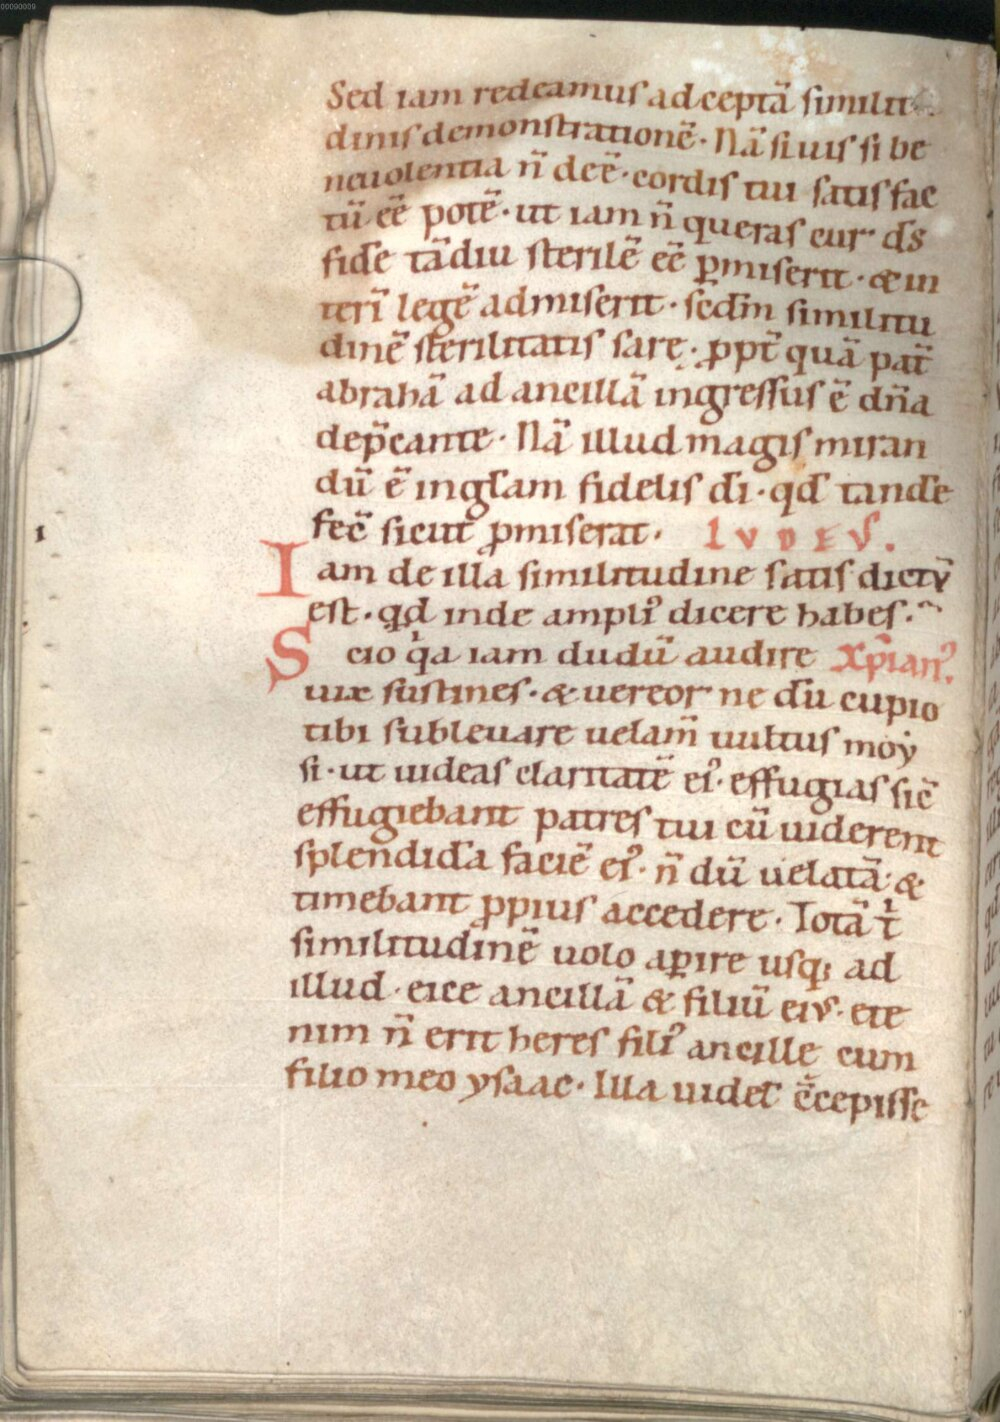 00090009
Sed iam redeamus ad ceptā similit
dinis demonstrationē · Nā si uis si be
neuolentia n̄ deē · cordis tui satis fac
tū eē potē · ut iam n̄ queras cur d̄s
fide tādiu sterilē eē ꝑmiserit · & in
terī legē admiserit · scd̄m similitu
dinē sterilitatis sarę · ꝓpt̄ quā pat̄
abrahā ad ancillā ingressus ē dn̄a
dep̄cante · Nā illud magis miran
dū ē in gl̄am fidelis dī · qd̄ tande
fec̄ sicut ꝓmiserat · IVDEVS.
Iam de illa similitudine satis dictv̄
est · qd̄ inde ampliꝰ dicere habes ·
Scio qͥa iam dudū audire xp̄ianꝰ.
uix sustines · & uereor ne dū cupio
tibi subleuare uelam̄ uultus moẏ
si · ut uideas claritatē eiꝰ · effugias sic̄
effugiebant patres tui cū uiderent
splendida faciē eiꝰ · n̄ dū uelatā · &
timebant ꝓpius accedere · Totā tͥ
similitudinē uolo aꝑire usq; ad
illud · eice ancillā & filiū eivs · ete
nim n̄ erit heres filiꝰ ancillę cum
filio meo ysaac · Illa uidet c̄cepisse
1